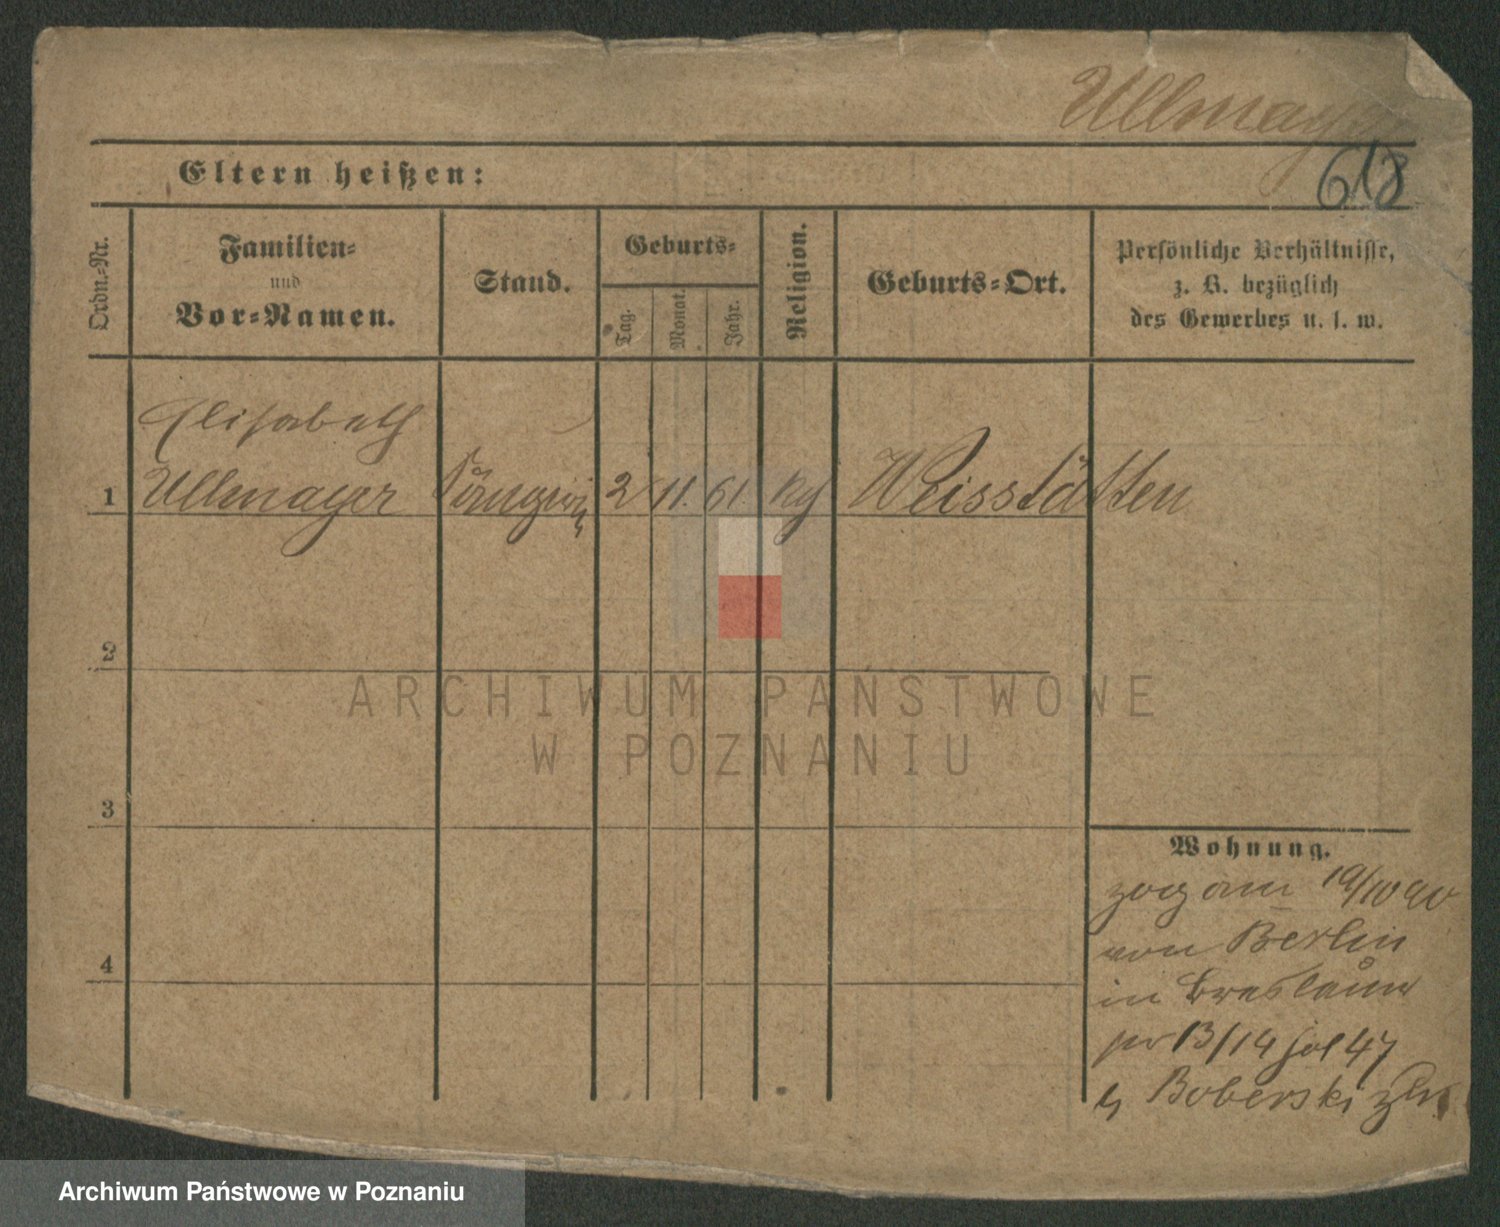 Ullmayer
618
Eltern heißen:
Ordn.-Nr.
Familien-
und
Vor-Namen.
Stand.
Geburts-
Tag.
Monat.
Jahr.
Religion.
Geburts-Ort.
Persönliche Verhältnisse,
z. B. bezüglich
des Gewerbes u. s. w.
Elisabeth
1 Ullmayer Sängerin 2 11. 61. Weisstätten
2
ARCHIWUM PAŃSTWOWE
W POZNANIU
3
Wohnung.
zog am 19/10 90
von Berlin
in
13/14 47
Boberski
4
Archiwum Państwowe w Poznaniu